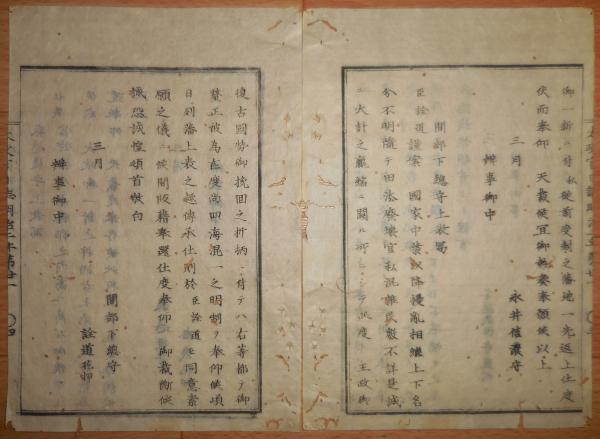 御一新ニ付私從前受制之藩地一先返上仕度
伏而奉仰 天裁候宜御執奏奉願候以上
三月
永井信濃守
辨事御中
間部下總守上表寫
臣詮道謹案 國家中葉以降擾亂相繼上下名
分不明隨テ田法廢壞官私混雜民數不詳是誠
ニ大計之
王政御
復古國勢御挽回之折柄ニ付テハ右等都テ御
釐正被為在度尚四海混一之明制ヲ奉仰候頃
日列藩上表之趣傳承仕則於 臣詮道 ニモ同意素
願之儀ニ候間版籍奉還仕度奉仰 御裁斷候
誠恐誠惶頓首敬白
三月
間部下總守
詮道花押
辨事御中